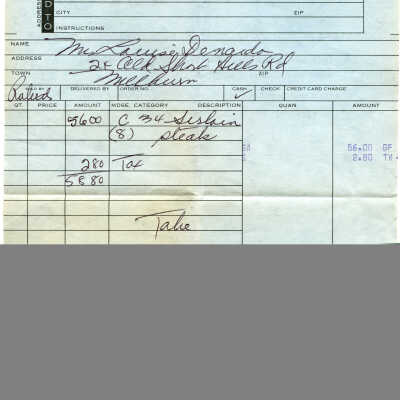 ADDRESS
D TO
CITY ZIP
INSTRUCTIONS
NAME Mrs Louise Denardo
ADDRESS 24 Old Short Hills Rd
TOWN Millburn ZIP
SOLD BY DELIVERED BY ORDER NO. CASH ✓ CHECK CREDIT CARD CHARGE
QT. PRICE AMOUNT MDSE. CATEGORY DESCRIPTION QUAN. AMOUNT
56 00 C 34 Sirloin
(8) steaks 56.00 GF
2 80 Tax 2.80 TX
58 80
Take